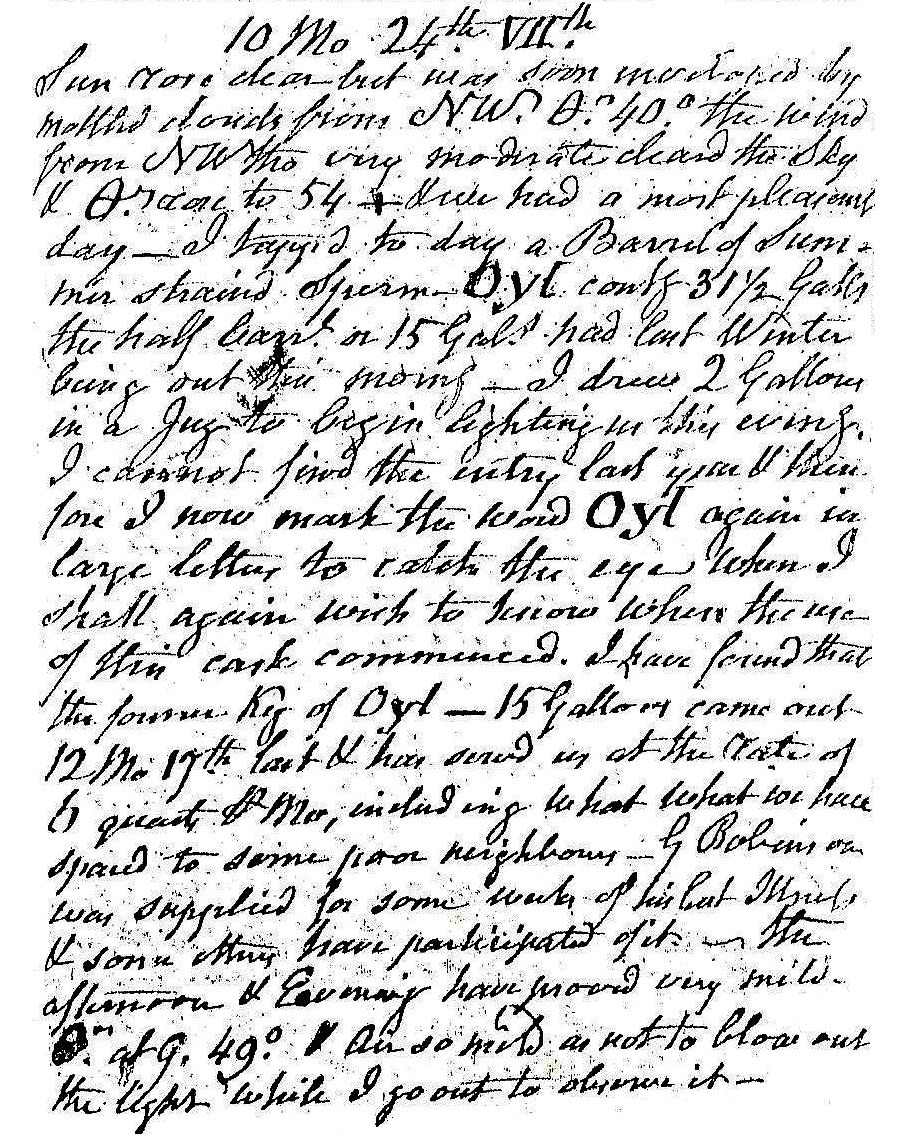 10 Mo 24th. VIIth.
Sun rose clear but was soon inveloped by
mottled clouds from NW. Θr. 40.° the wind
from NW tho very moderate cleard the Sky
& Θr. rose to 54 — & we had a most pleasant
day — I tapp'd to day a Barrel of Sum-
mer straind Sperm — Oyl contg 31 1/2 Galls
the half barrl. or 15 Gals. had last Winter
being out this morng — I drew 2 Gallons
in a Jug to begin lighting us this eveng.
I cannot find the entry last year & there
fore I now mark the word Oyl again in
large letters to catch the eye when I
shall again wish to know when the use
of this cask commenced. I have found that
the former Keg of Oyl — 15 Gallons came out
12 Mo 17th last & has served us at the rate of
6 quarts ⅌ Mo, including what what we have
spard to some poor neighbours — G Robinson
was supplied for some weeks of his last Illness
& some others have participated of it — the
afternoon & Eevening have proovd very mild.
Θr. at 9. 49.° & Air so mild as not to blow out
the light while I go out to observe it —